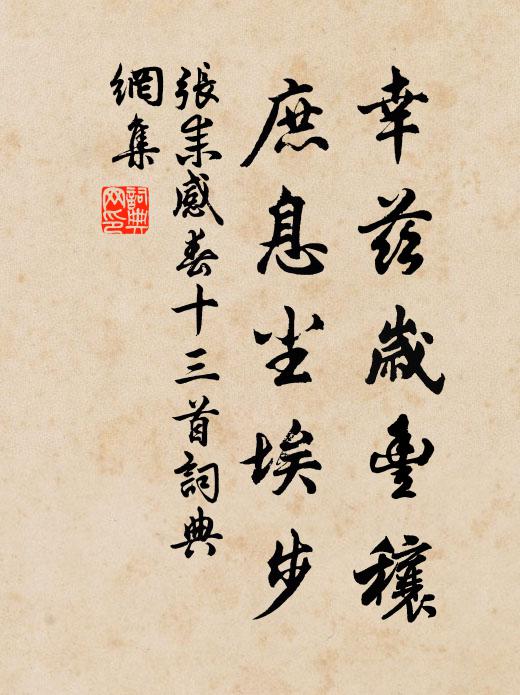 幸茲歲豐穰
庶息尘埃步
張耒感春十三首詞典
網集
詞典
网印